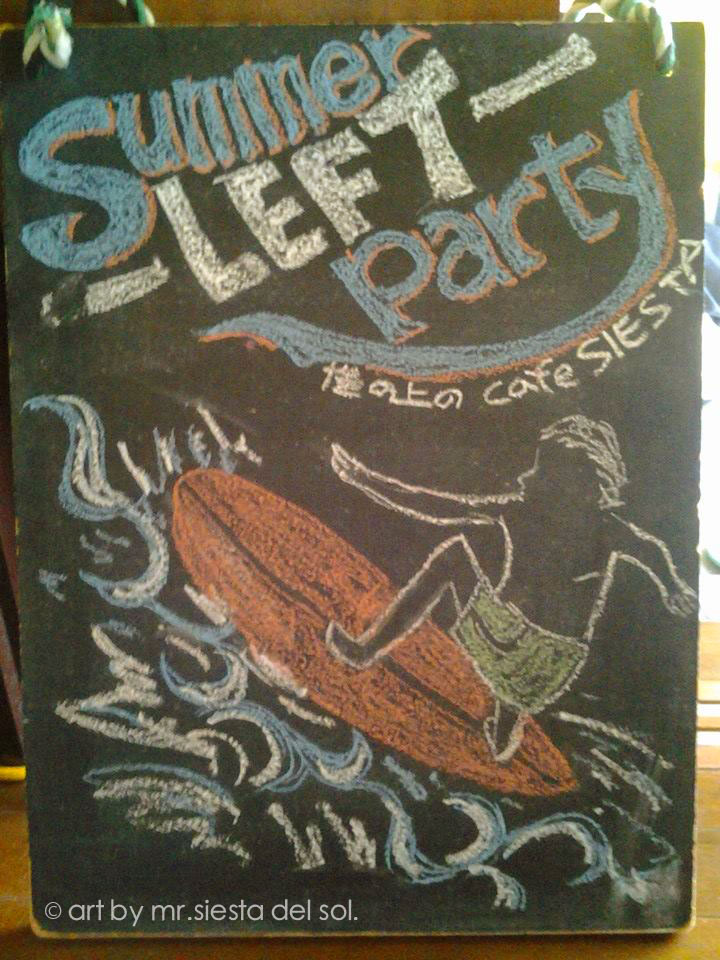 Summer
LEFT
Party
の上の cafe SIESTA
© art by mr.siesta del sol.